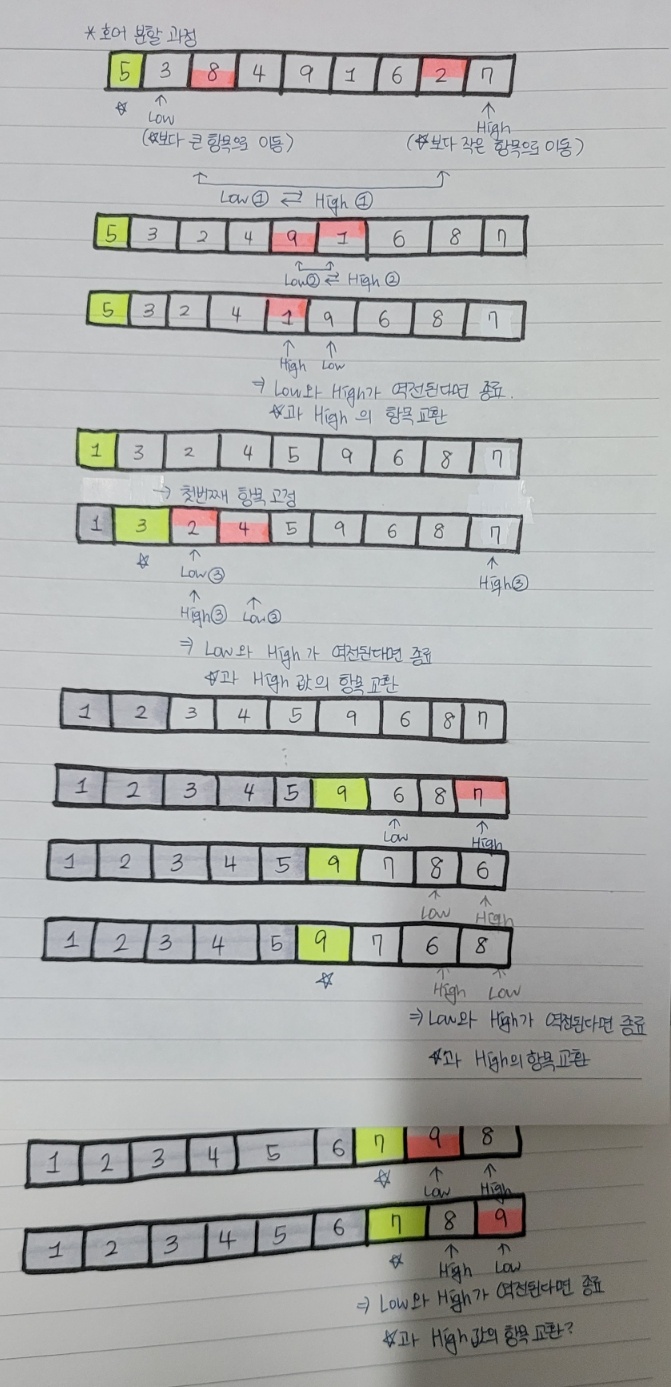 *호어 분할 과정
5 3 8 4 9 1 6 2 7
☆ ↑ ↑
Low High
(☆보다 큰 항목으로 이동) (☆보다 작은 항목으로 이동)
Low① ⇄ High①
5 3 2 4 9 1 6 8 7
Low② ⇄ High②
5 3 2 4 1 9 6 8 7
↑ ↑
High Low
⇒ Low와 High가 역전된다면 종료.
☆과 High의 항목교환
1 3 2 4 5 9 6 8 7
→ 첫번째 항목 고정
1 3 2 4 5 9 6 8 7
☆ ↑ ↑
Low③ High③
↑ ↑
High③ Low③
⇒ Low와 High가 역전된다면 종료
☆과 High 값의 항목교환
1 2 3 4 5 9 6 8 7
⋮
1 2 3 4 5 9 6 8 7
↑ ↑
Low High
1 2 3 4 5 9 7 8 6
↑ ↑
Low High
1 2 3 4 5 9 7 6 8
☆ ↑ ↑
High Low
⇒ Low와 High가 역전된다면 종료
☆과 High의 항목교환
1 2 3 4 5 6 7 9 8
☆ ↑ ↑
Low High
1 2 3 4 5 6 7 8 9
☆ ↑ ↑
High Low
⇒ Low와 High가 역전된다면 종료
☆과 High값의 항목교환?